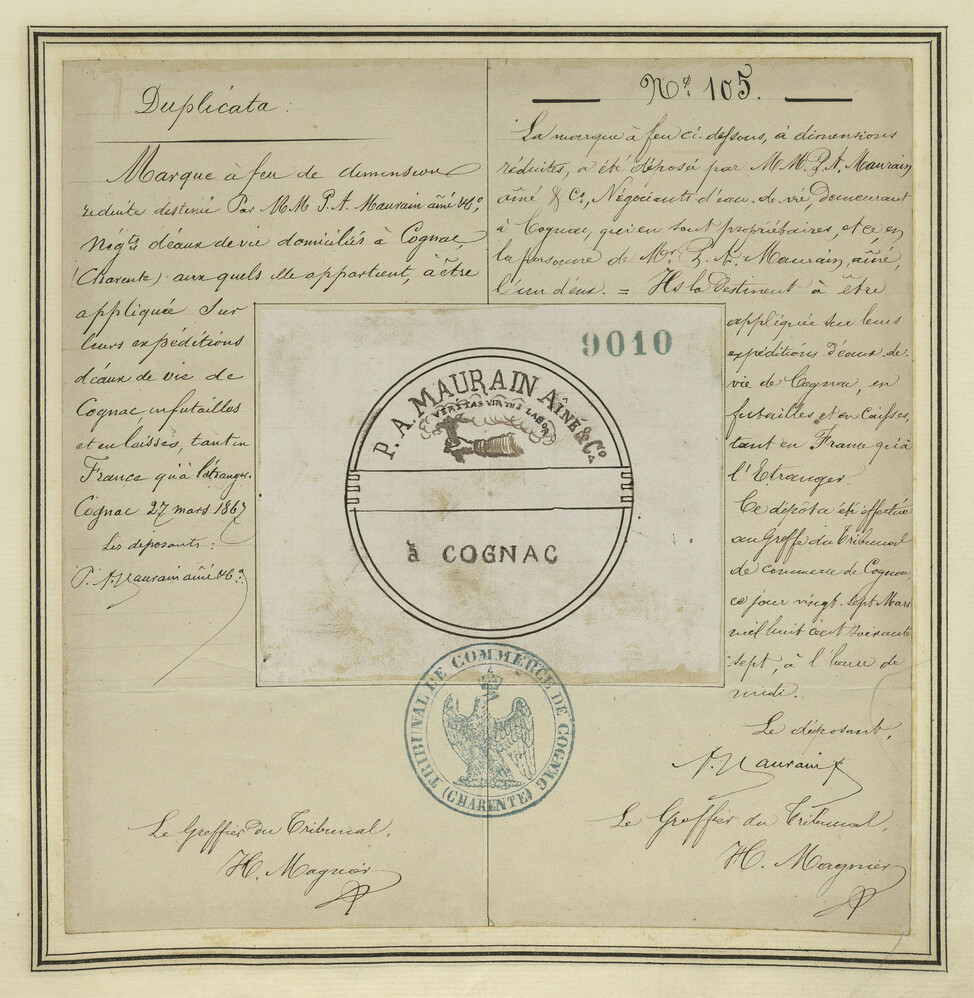 Duplicata :
Marque à feu de dimension
réduite destinée Par MM P. A. Maurain aîné & Cº,
Négts d'eaux de vie domiciliés à Cognac,
(Charente) aux quels elle appartient, à être
appliquée Sur
leurs expéditions
d'eaux de vie de
Cognac en futailles
et en caisses, tant en
France qu'à l'étranger.
Cognac 27 mars 1867
Les déposants :
P. A. Maurain aîné & Cº.
Nº 105.
La marque à feu ci-dessous, à dimensions
réduites, a été déposée par M.M. P. A. Maurain
aîné & Cº, Négociants d'eau-de-vie, demeurant
à Cognac, qui en sont propriétaires, et ce en
la personne de Mr. P. A. Maurain, aîné,
l'un d'eux. = Ils la destinent à être
appliquée sur leurs
expéditions d'eaux-de-
vie de Cognac, en
futailles et en caisses,
tant en France qu'à
l'Etranger.
Ce dépôt a été effectué
au Greffe du Tribunal
de commerce de Cognac
ce jour vingt-sept Mars
mil huit cent soixante
sept, à l'heure de
midi.
Le déposant,
A. Maurain
9010
P. A. MAURAIN AÎNÉ & Cº
VERITAS VIRTUS LABOR
à COGNAC
TRIBUNAL DE COMMERCE DE COGNAC
(CHARENTE)
Le Greffier du Tribunal,
H. Magnier
Le Greffier du Tribunal,
H. Magnier